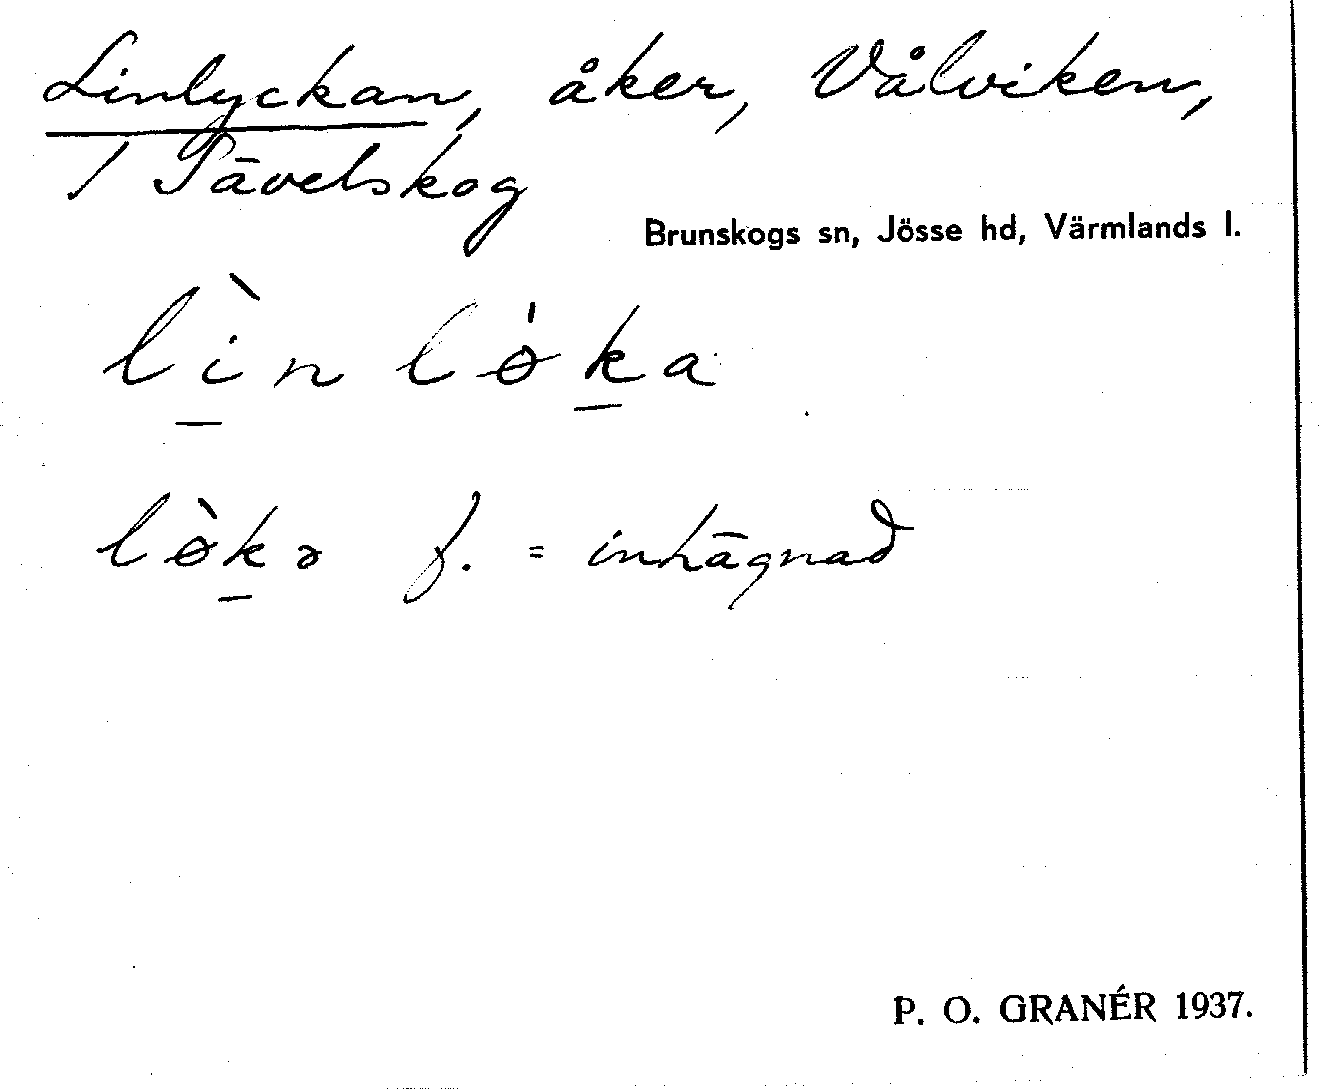 Linlyckan, åker, Vålviken,
/ Pävelskog
Brunskogs sn, Jösse hd, Värmlands l.
lìn lǿka
lø̀kə f. = inhägnad
P. O. GRANÉR 1937.